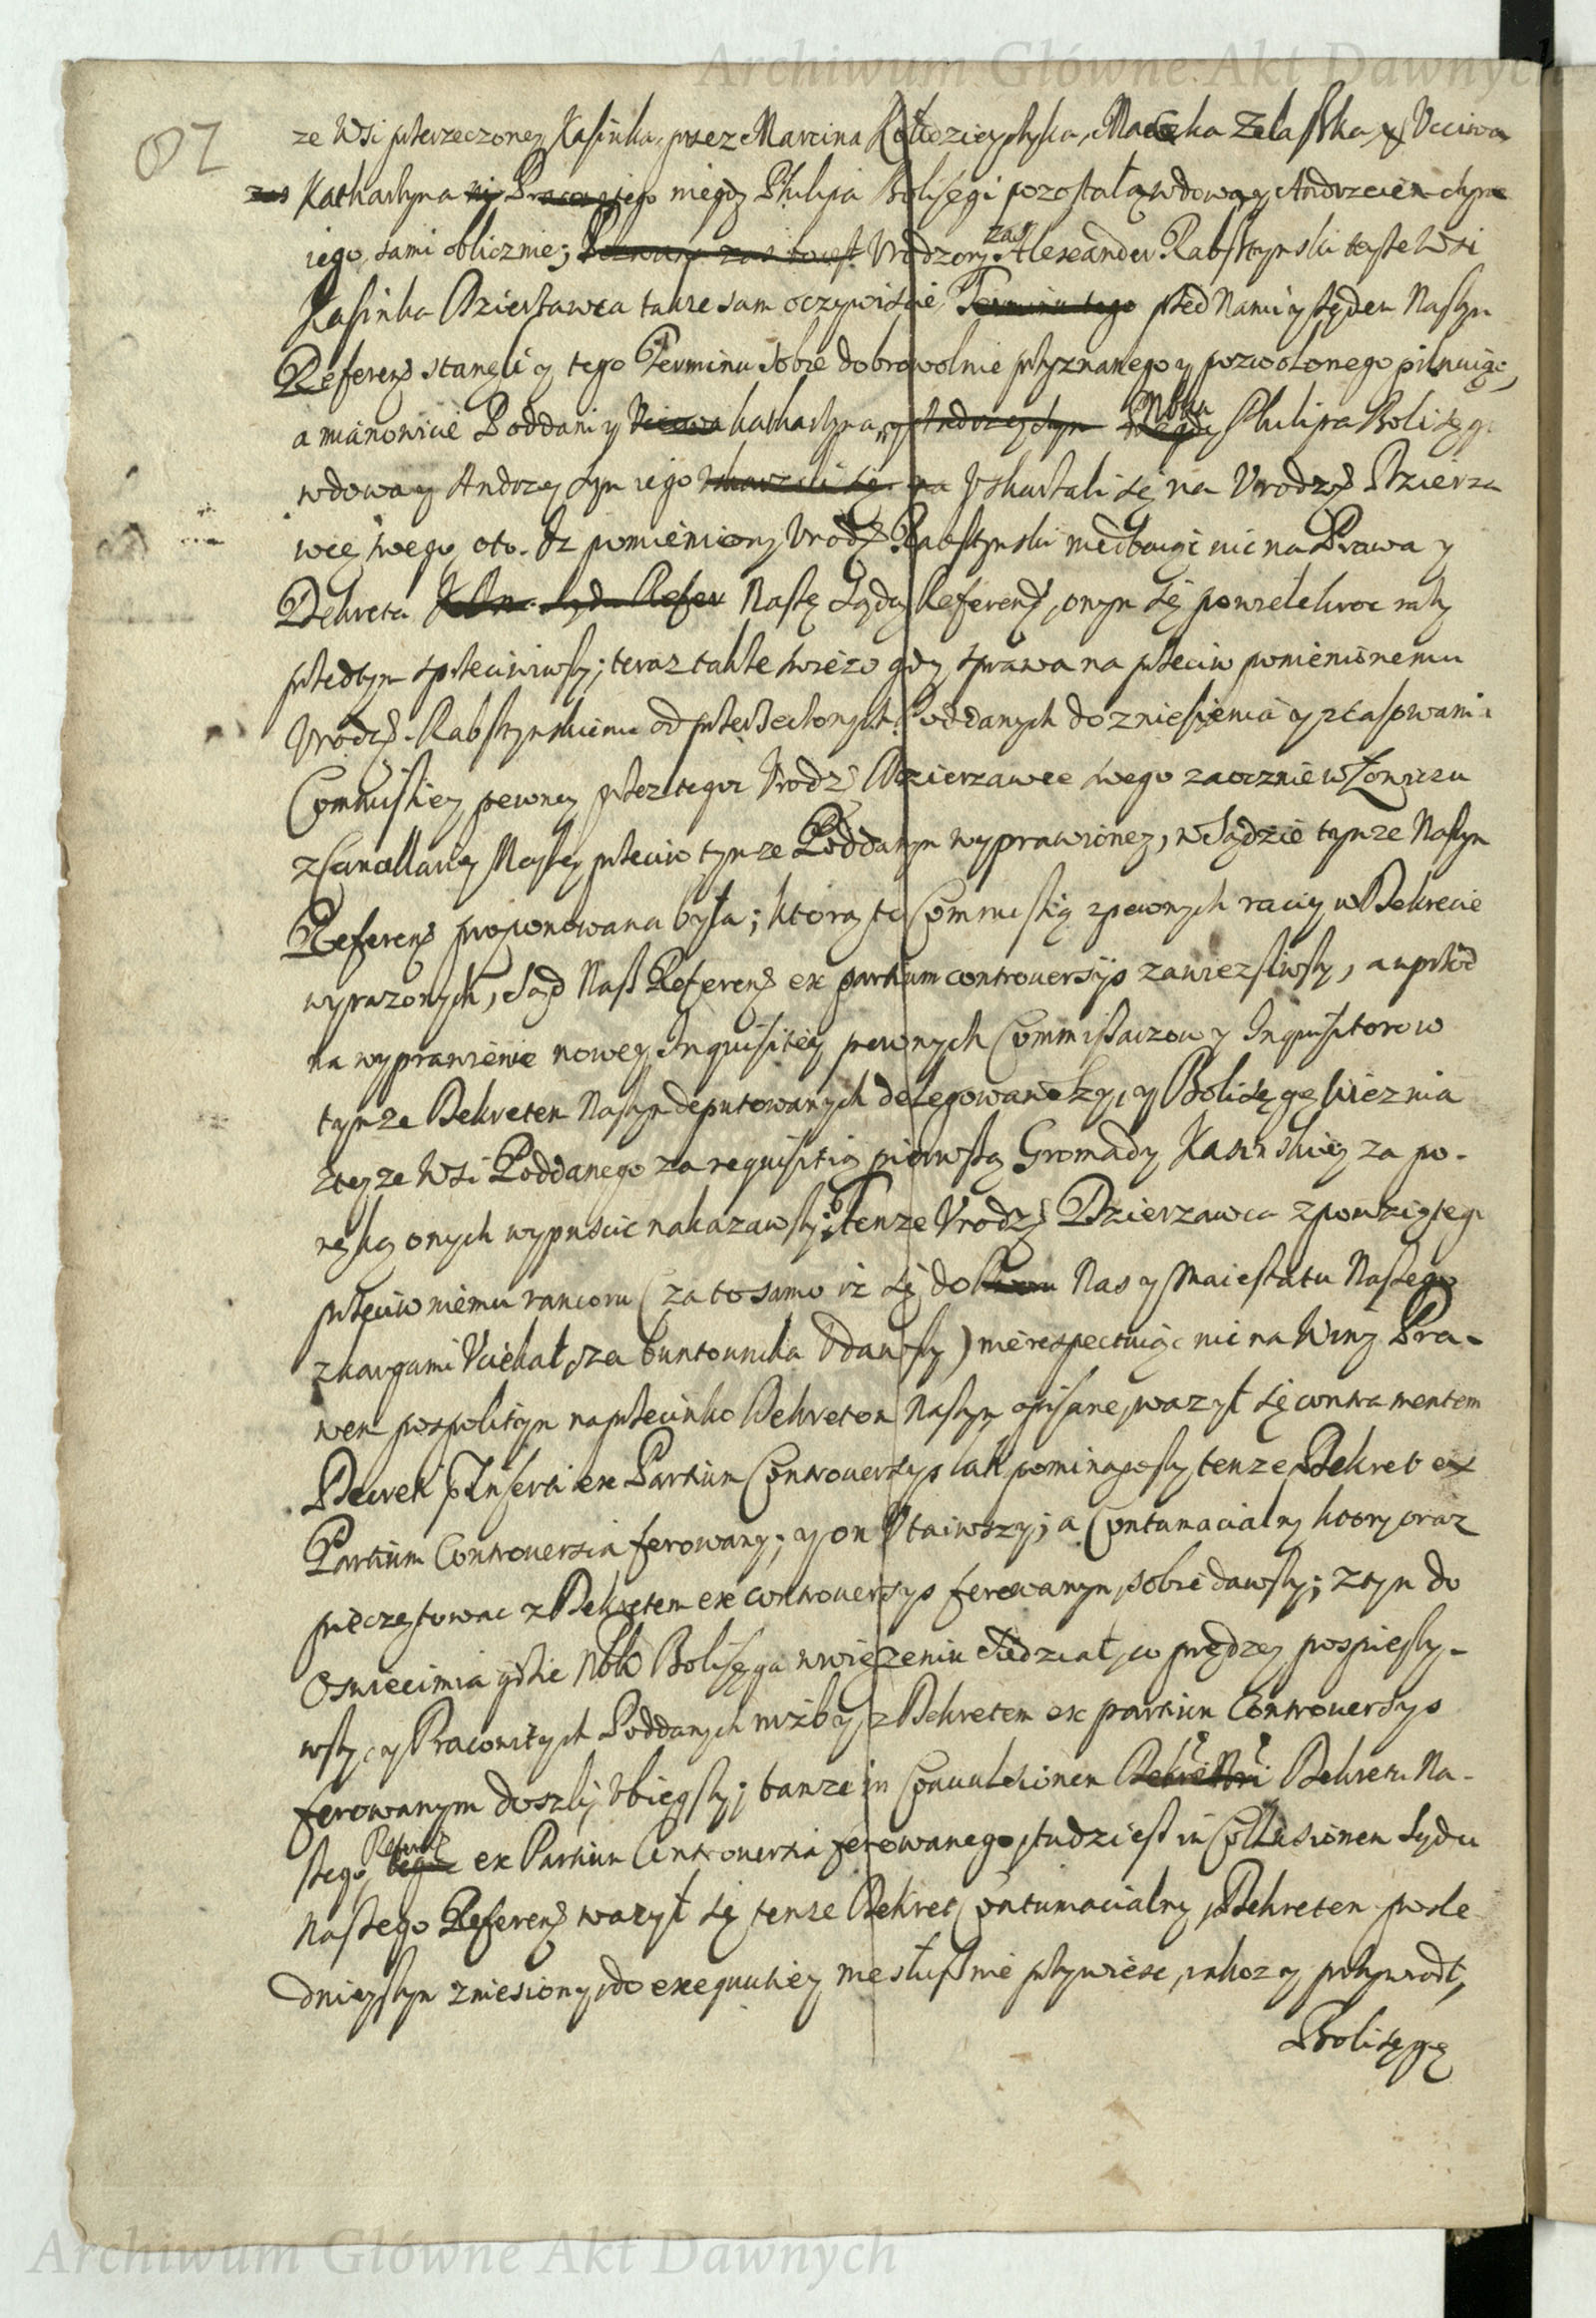 Archiwum Główne Akt Dawnych
ze Wsi przerzeczoney Kasinka, przez Marcina Kołodzieyczyka, Macka Zelaska, Vcciwa
zas Katharzyna niegdy Philipa Bolisęgi pozostałą wdową y Andrzeiem synem
iego, sami oblicznie; Vrodzony zas Alexander Rabsztynski teyze Wsi
Kasinka Dzierzawca takze sam oczywiscie przed Nami y sądem Naszym
Referens stanęli y tego Terminu sobie dobrowolnie przyznanego y pozwolonego pilnuiąc,
a mianowicie Poddani y Katharzyna Philipa Bolisęgi
wdowa y Andrzey syn iego Vskarzali się na Vrodz. Dzierza
wcę swego oto. Iz pomieniony Vrodz. Rabsztynski niedbaiąc nic na Prawa y
Dekreta Naszę Sądu Referens, onym się powielekroc razy
przedtym sprzeciwiwszy; teraz takze swiezo gdy sprawa na przeciw pomienionemu
Vrodz. Rabsztynskiemu od przerzeczonych Poddanych do zniesienia y skasowania
Commissiey pewney przez tegoz Vrodz. Dzierzawce swego zaocznie
z Cancellariey Naszey przeciw tymze Poddanym wyprawioney, w Sądzie tymze Naszym
Referens proponowana była; ktorą to Commissią z pewnych raciy w Dekrecie
wyrazonych, Sąd Nasz Referens ex partium controversijs zawiesiwszy, a wprzod
na wyprawienie nowey Inquisitiey pewnych Commissarzow y Inquisitorow
tymze Dekretem Naszym deputowanych delegowawszy, y Bolisęgę więznia
z teyze Wsi Poddanego za requisitią pierwszą Gromady Kasinskiey za po-
ręką onych wypuscic nakazawszy; Tenze Vrodz. Dzierzawca z powziętego
przeciw niemu rancoru (za to samo iz się do Nas y Maiestatu Naszego
z skargami Vciekał, za buntownika Vdawszy) nierespectuiąc nic na Winy Pra-
wem pospolitym naprzeciwko Dekretom Naszym opisane, wazył się contra mentem
Decreti ex Partium Controversijs tenze Dekret ex
Partium Controversia ferowany; y on Vtaiwszy; a Contumacialny ktory oraz
pieczętowac z Dekretem ex controversijs ferowanym, sobie dawszy; z tym do
Oswiecimia gdzie Bolisęga w więzeniu siedział, co prędzey pospieszy-
wszy, y Pracowitych Poddanych nizby z Dekretem ex partium Controversijs
ferowanym doszli, Vbiegszy; tamze in Convulsionem Dekretu Na-
szego, ex Partium Controversia ferowanego, tudziesz in Collusionem Sądu
Naszego Referens wazył się tenze Dekret Contumacialny, Dekretem posle
dnieyszym zniesiony, do exequutiey niesłusznie przywiesc, iakoz y przywodł,
Bolisęgę
Archiwum Główne Akt Dawnych